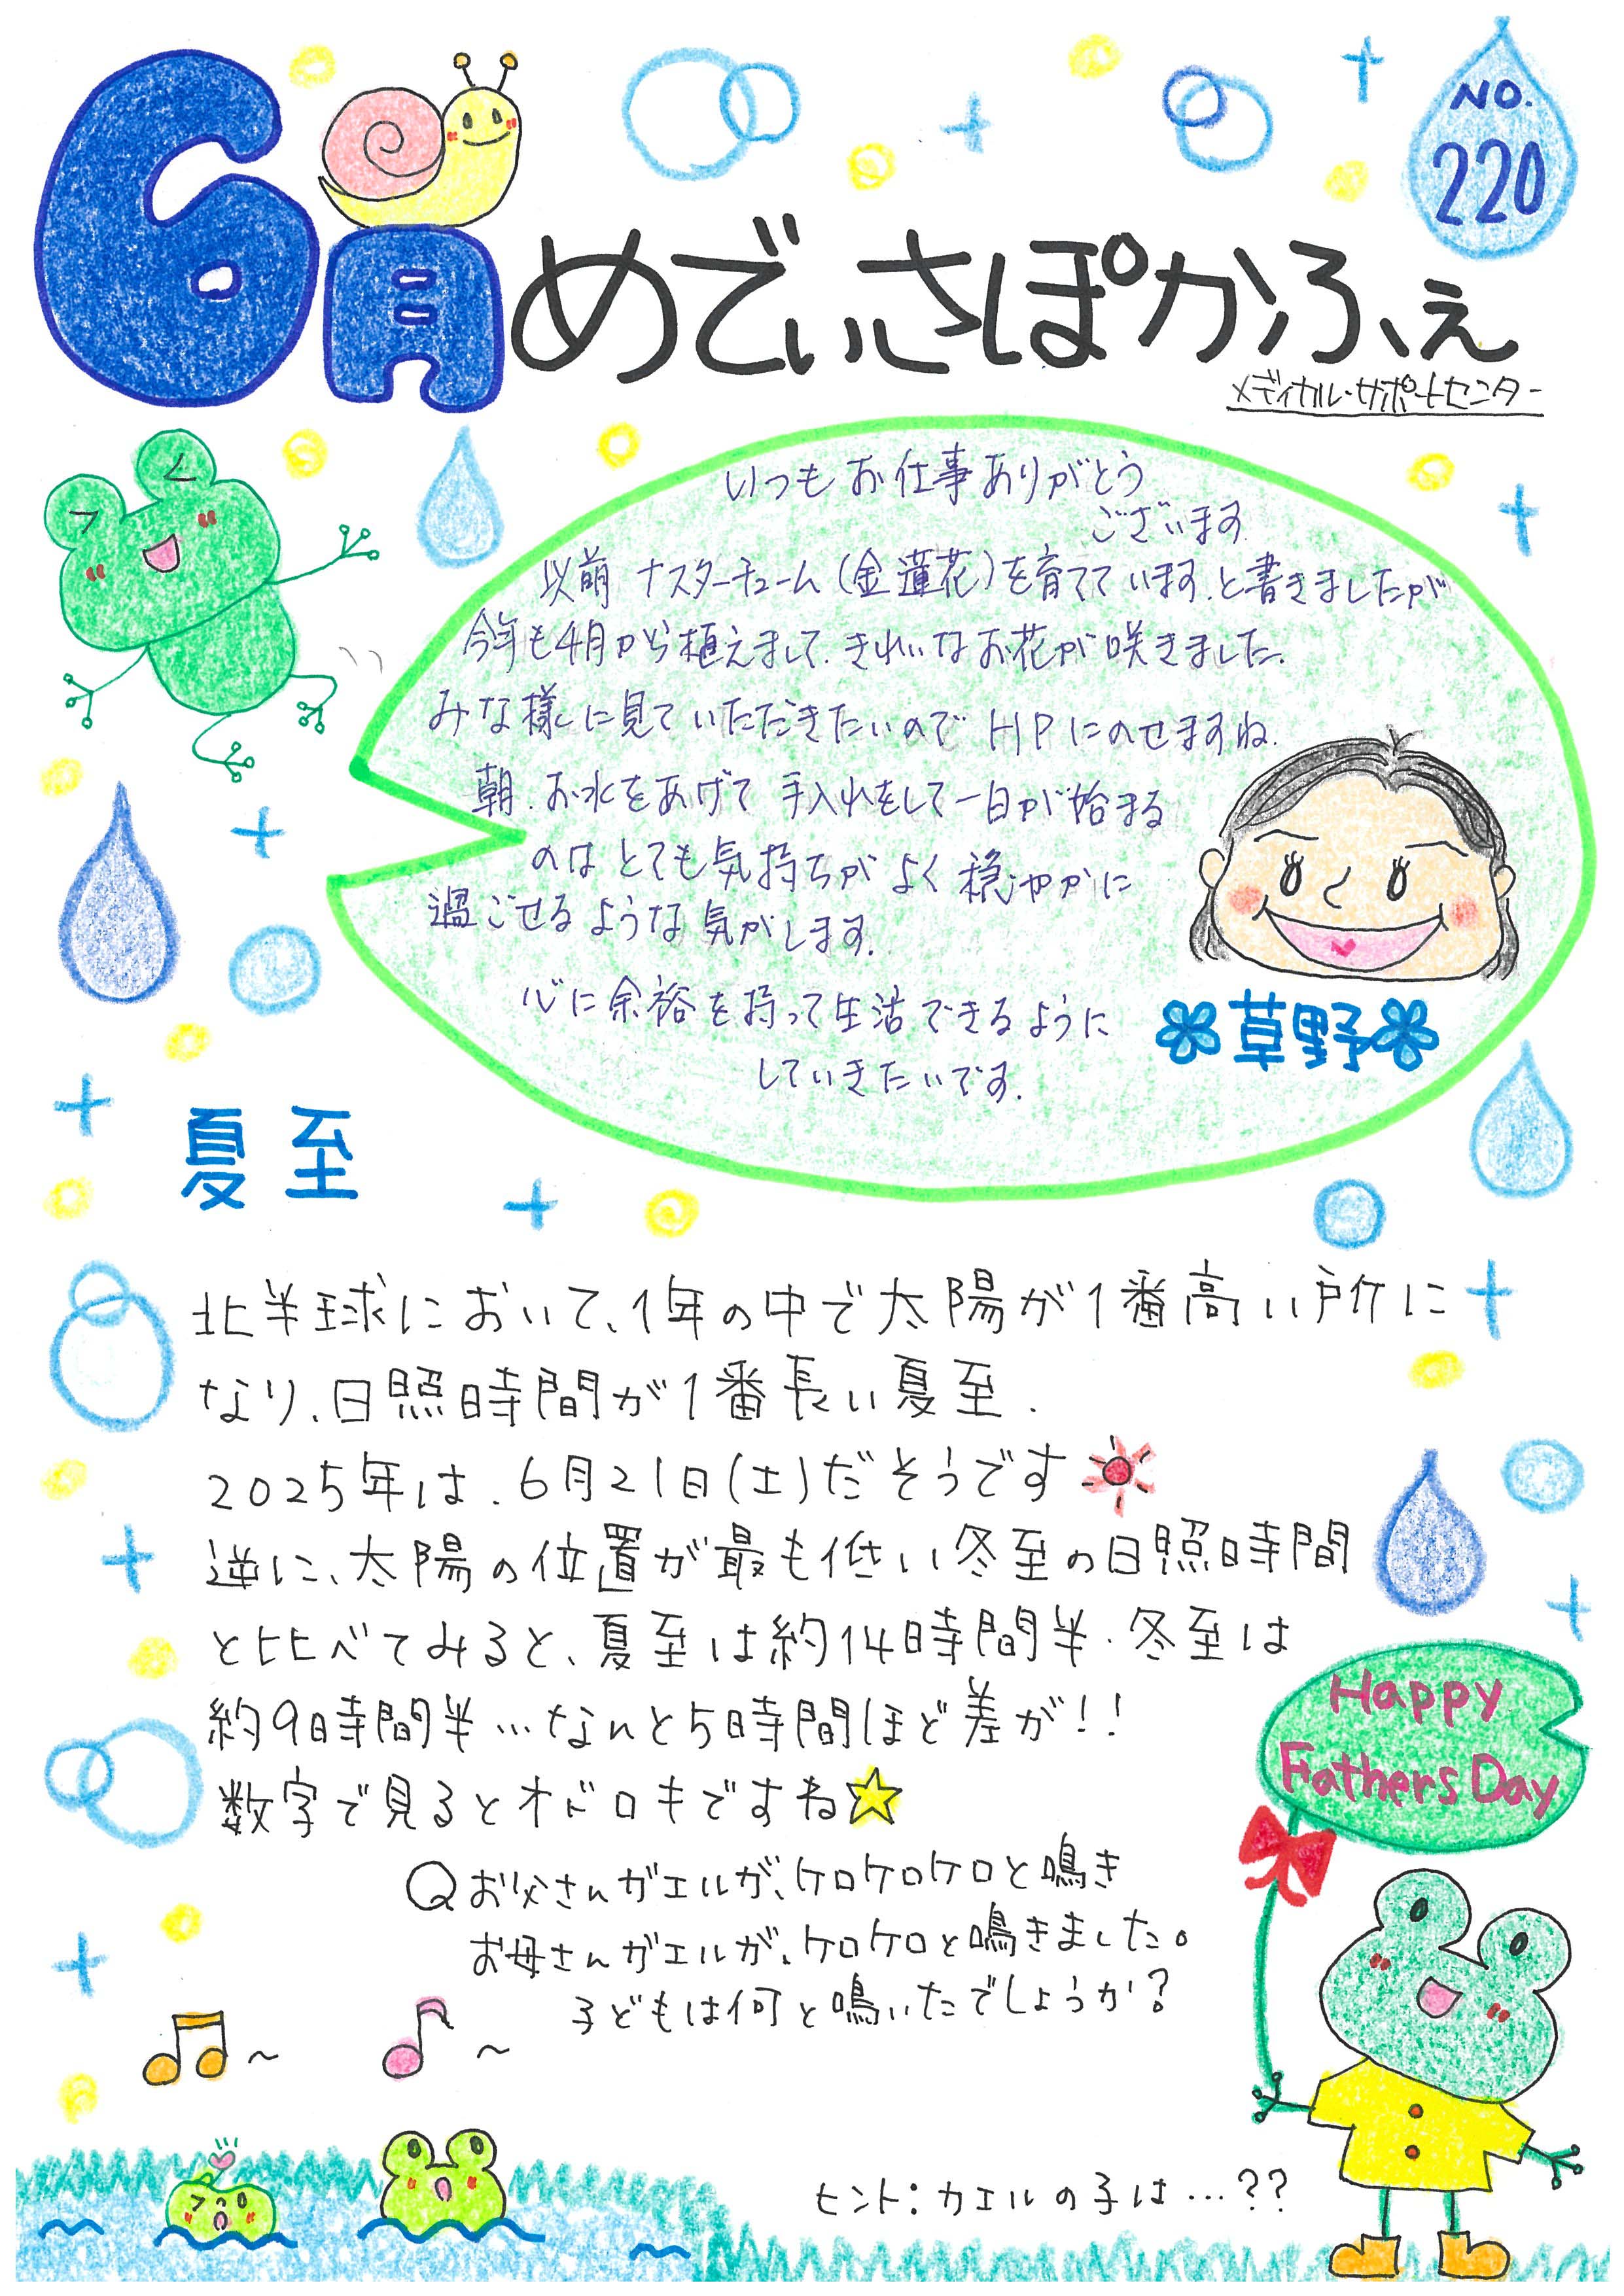 NO.
220
6月 めでぃさぽかふぇ
メディカル・サポートセンター
いつもお仕事ありがとう
ございます
以前 ナスターチューム(金蓮花)を育てています.と書きましたが
今年も4月から植えまして.きれいなお花が咲きました.
みな様に見ていただきたいので HPにのせますね.
朝.お水をあげて 手入れをして一日が始まる
のは とても気持ちが よく 穏やかに
過ごせるような気がします.
心に余裕を持って生活できるように
していきたいです.
草野
夏至
北半球において、1年の中で太陽が1番高い所に
なり、日照時間が1番長い夏至.
2025年は、6月21日(土)だそうです
逆に、太陽の位置が最も低い冬至の日照時間
と比べてみると、夏至は約14時間半、冬至は
約9時間半…なんと5時間ほど差が!!
数字で見るとオドロキですね
Happy
Fathers Day
Qお父さんガエルが、ケロケロケロと鳴き
お母さんガエルが、ケロケロと鳴きました。
子どもは何と鳴いたでしょうか?
ヒント:カエルの子は…??